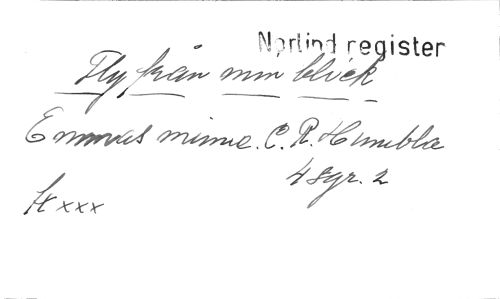 Norlind register
Fly från min blick
Emmas minne. C. R. Humbla
4 syr. 2
H xxx